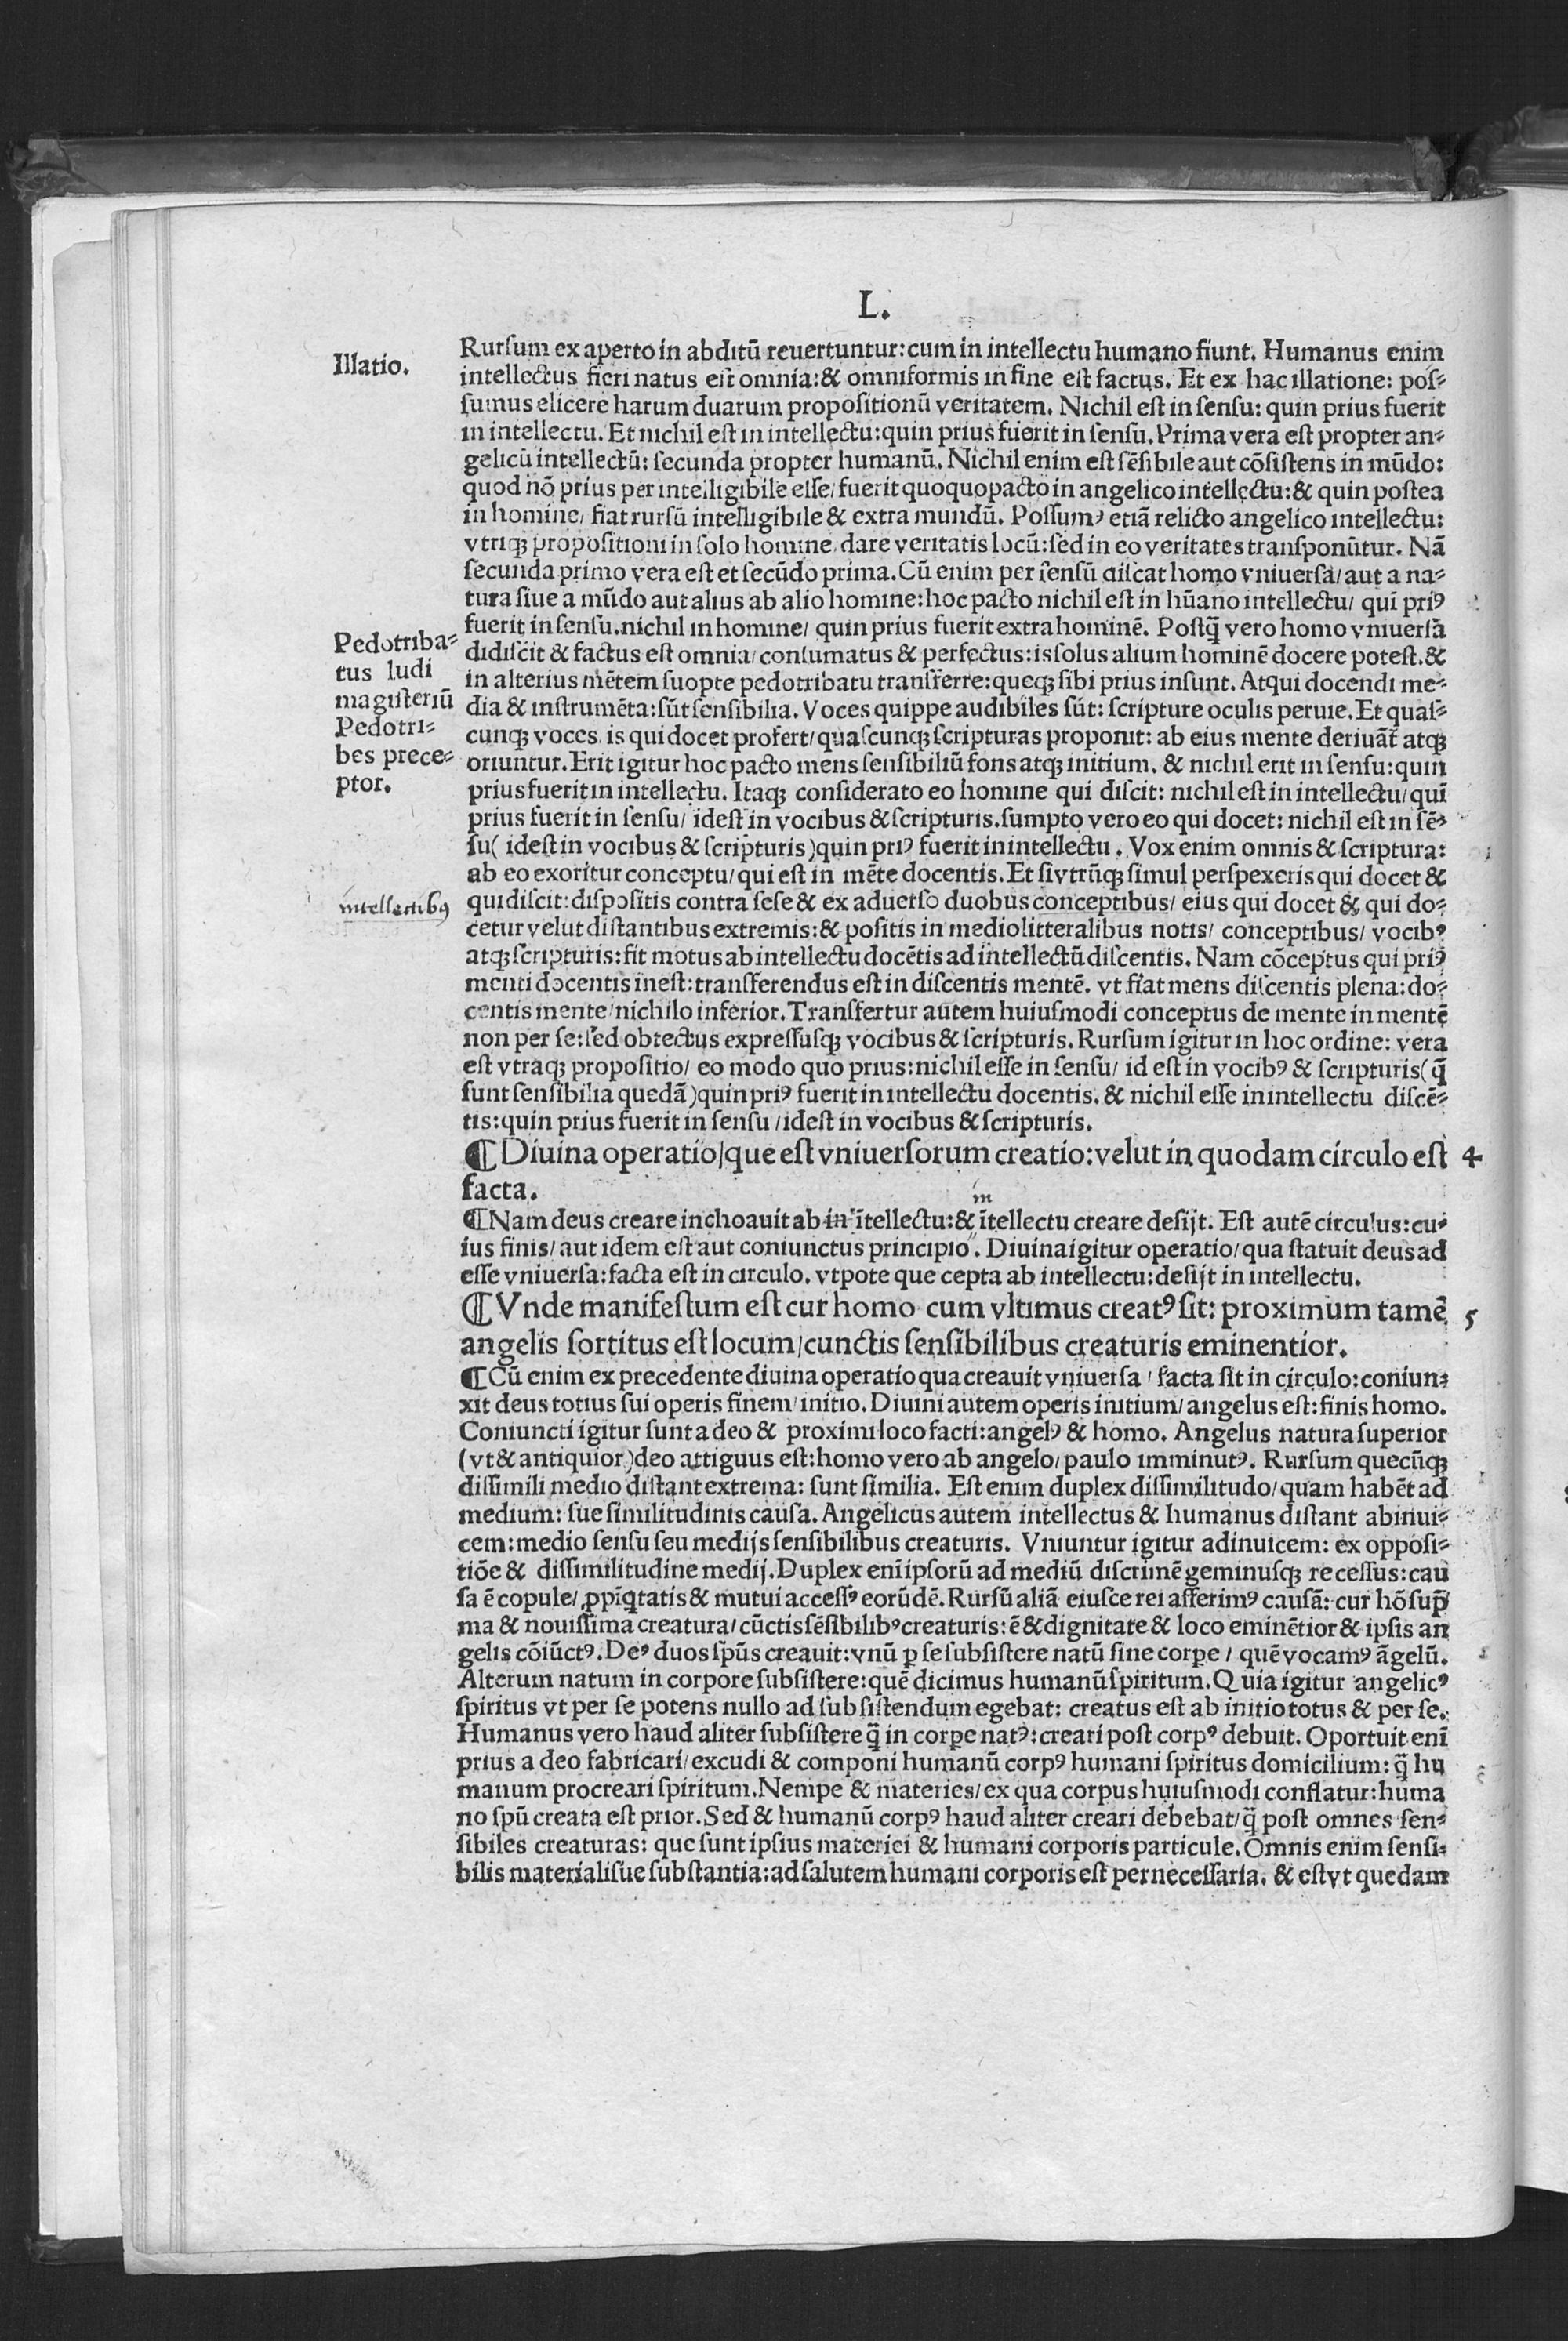 L.
Illatio.
Rursum ex aperto in abditū reuertuntur: cum in intellectu humano fiunt. Humanus enim
intellectus fieri natus est omnia: & omniformis in fine est factus. Et ex hac illatione: pos⸗
sumus elicere harum duarum propositionū veritatem. Nichil est in sensu: quin prius fuerit
in intellectu. Et nichil est in intellectu: quin prius fuerit in sensu. Prima vera est propter an⸗
gelicū intellectū: secunda propter humanū. Nichil enim est sēsibile aut cōsistens in mūdo:
quod nō prius per intelligibile esse/ fuerit quoquopacto in angelico intellectu: & quin postea
in homine/ fiat rursū intelligibile & extra mundū. Possumꝰ etiā relicto angelico intellectu:
vtriqꝫ propositioni in solo homine dare veritatis locū: sed in eo veritates transponūtur. Nā
secunda primo vera est et secūdo prima. Cū enim per sensū discat homo vniuersa/ aut a na⸗
tura siue a mūdo aut alius ab alio homine: hoc pacto nichil est in hūano intellectu/ qui priꝰ
fuerit in sensu. nichil in homine/ quin prius fuerit extra hominē. Postq̄ vero homo vniuersa
Pedotriba⸗
tus ludi
magisteriū
Pedotri⸗
bes prece⸗
ptor.
didiscit & factus est omnia/ consumatus & perfectus: is solus alium hominē docere potest. &
in alterius mētem suopte pedotribatu transferre: queqꝫ sibi prius insunt. Atqui docendi me⸗
dia & instrumēta: sūt sensibilia. Voces quippe audibiles sūt: scripture oculis peruie. Et quas⸗
cunqꝫ voces is qui docet profert/ quascunqꝫ scripturas proponit: ab eius mente deriuāt atqꝫ
oriuntur. Erit igitur hoc pacto mens sensibiliū fons atqꝫ initium. & nichil erit in sensu: quin
prius fuerit in intellectu. Itaqꝫ considerato eo homine qui discit: nichil est in intellectu/ quī
prius fuerit in sensu/ idest in vocibus & scripturis. sumpto vero eo qui docet: nichil est in sē⸗
su( idest in vocibus & scripturis) quin priꝰ fuerit in intellectu. Vox enim omnis & scriptura:
ab eo exoritur conceptu/ qui est in mēte docentis. Et si vtrūqꝫ simul perspexeris qui docet &
intellectibꝰ
qui discit: dispositis contra sese & ex aduerso duobus conceptibus/ eius qui docet & qui do⸗
cetur velut distantibus extremis: & positis in medio litteralibus notis/ conceptibus/ vocibꝰ
atqꝫ scripturis: fit motus ab intellectu docētis ad intellectū discentis. Nam cōceptus qui priꝰ
menti docentis inest: transferendus est in discentis mentē. vt fiat mens discentis plena: do⸗
centis mente/ nichilo inferior. Transfertur autem huiusmodi conceptus de mente in mentē
non per se: sed obtectus expressusqꝫ vocibus & scripturis. Rursum igitur in hoc ordine: vera
est vtraqꝫ propositio/ eo modo quo prius: nichil esse in sensu/ id est in vocibꝰ & scripturis (q̄
sunt sensibilia quedā) quin priꝰ fuerit in intellectu docentis. & nichil esse in intellectu discē⸗
tis: quin prius fuerit in sensu / idest in vocibus & scripturis.
¶ Diuina operatio/ que est vniuersorum creatio: velut in quodam circulo est 4
facta.
in
¶ Nam deus creare inchoauit ab in ītellectu: & ītellectu creare desijt. Est autē circulus: cu⸗
ius finis/ aut idem est aut coniunctus principio. Diuina igitur operatio/ qua statuit deus ad
esse vniuersa: facta est in circulo. vtpote que cepta ab intellectu: desijt in intellectu.
¶ Vnde manifestum est cur homo cum vltimus creatꝰ sit: proximum tamē 5
angelis sortitus est locum/ cunctis sensibilibus creaturis eminentior.
¶ Cū enim ex precedente diuina operatio qua creauit vniuersa / facta sit in circulo: coniun⸗
xit deus totius sui operis finem/ initio. Diuini autem operis initium/ angelus est: finis homo.
Coniuncti igitur sunt a deo & proximi loco facti: angelꝰ & homo. Angelus natura superior
(vt & antiquior) deo attiguus est: homo vero ab angelo/ paulo imminutꝰ. Rursum quecūqꝫ
dissimili medio distant extrema: sunt similia. Est enim duplex dissimilitudo/ quam habēt ad
medium: sue similitudinis causa. Angelicus autem intellectus & humanus distant abinui⸗
cem: medio sensu seu medijs sensibilibus creaturis. Vniuntur igitur adinuicem: ex opposi⸗
tiōe & dissimilitudine medij. Duplex enī ipsorū ad mediū discrimē geminusqꝫ recessus: cau
sa ē copule/ ꝓpīq̄tatis & mutui accessꝰ eorūdē. Rursū aliā eiusce rei afferimꝰ causā: cur hō sup̄
ma & nouissima creatura/ cūctis sēsibilibꝰ creaturis: ē & dignitate & loco eminētior & ipsis an
gelis cōiūctꝰ. Deꝰ duos sp̄us creauit: vnū ꝑ se subsistere natū sine corpe / quē vocamꝰ āgelū.
Alterum natum in corpore subsistere: quē dicimus humanū spiritum. Quia igitur angelicꝰ
spiritus vt per se potens nullo ad subsistendum egebat: creatus est ab initio totus & per se.
Humanus vero haud aliter subsistere q̄ in corpe natꝰ: creari post corpꝰ debuit. Oportuit enī
prius a deo fabricari/ excudi & componi humanū corpꝰ humani spiritus domicilium: q̄ hu
manum procreari spiritum. Nempe & materies/ ex qua corpus huiusmodi conflatur: huma
no spū creata est prior. Sed & humanū corpꝰ haud aliter creari debebat/ q̄ post omnes sen⸗
sibiles creaturas: que sunt ipsius materiei & humani corporis particule. Omnis enim sensi⸗
bilis materialisue substantia: ad salutem humani corporis est pernecessaria. & est vt quedam